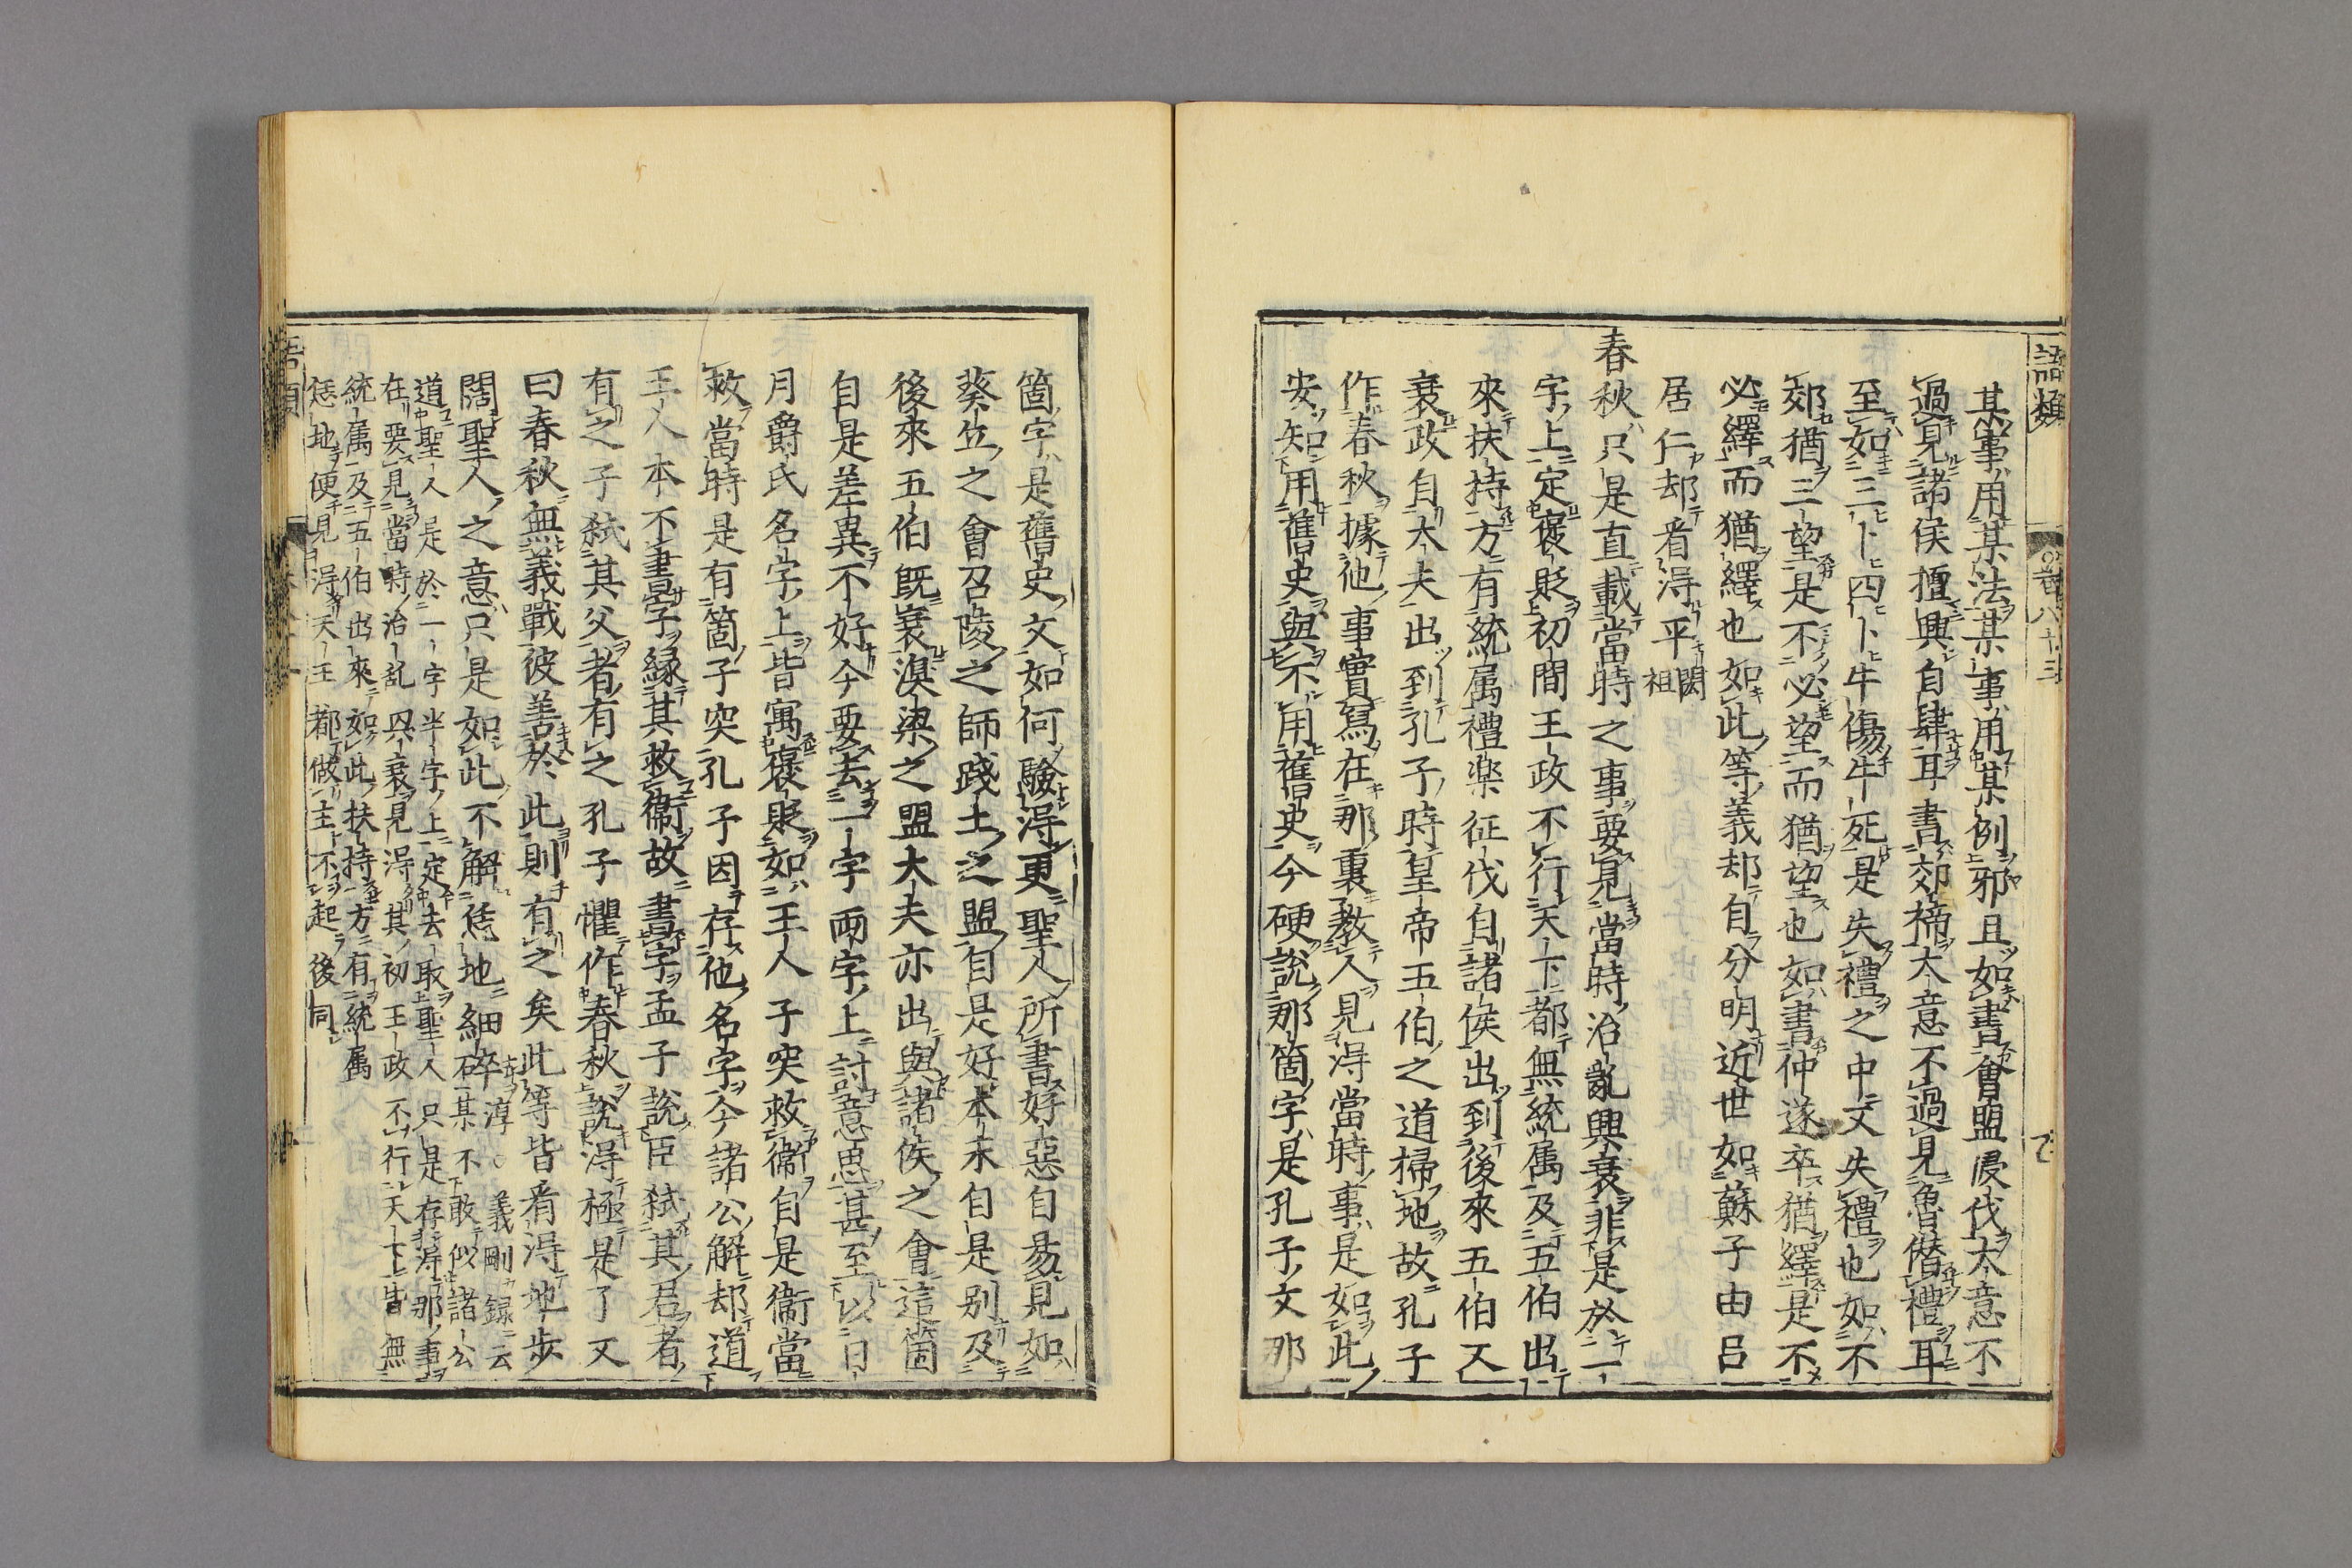 語類
卷八十三
某事用某法某事用某例邪且如書會盟侵伐大意不
過見諸侯擅興自肆耳書郊禘大意不過見魯僭禮耳
至如三卜四卜牛傷牛死是失禮之中又失禮也如不
郊猶三望是不必望而猶望也如書仲遂卒猶繹是不
必繹而猶繹也如此等義却自分明近世如蘇子由呂
居仁却看得平閎祖
春秋只是直載當時之事要見當時治亂興衰非是於一
字上定褒貶初間王政不行天下都無統属及五伯出
來扶持方有統属禮樂征伐自諸侯出到後來五伯又
衰政自大夫出到孔子時皇帝五伯之道掃地故孔子
作春秋據他事實寫在那裏教人見得當時事是如此
安知用舊史與不用舊史今硬說那箇字是孔子文那
箇字是舊史文如何驗得更聖人所書好惡自易見如
葵丘之會召陵之師踐土之盟自是好本末自是別及
後來五伯既衰溴梁之盟大夫亦出與諸侯之會這箇
自是差異不好今要去一字兩字上討意思甚至以日
月爵氏名字上皆寓褒貶如王人子突救衞自是衞當
救當時是有箇子突孔子因存他名字今諸公解却道
王人本不書字緣其救衞故書字孟子說臣弑其君者
有之子弑其父者有之孔子懼作春秋說得極是了又
曰春秋無義戰彼善於此則有之矣此等皆看得地步
闊聖人之意只是如此不解恁地細碎淳○義剛録云
某不敢似諸公
道聖人是於一字半字上定去取聖人只是存得那事
在要見當時治亂興衰見得其初王政不行天下皆無
統属及五伯出來如此扶持方有統属
恁地便見得天王都做主不起後同